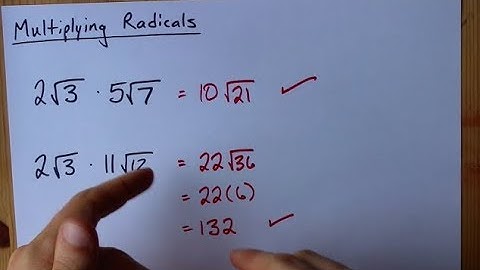 Multiplying Radicals
2√3 · 5√7 = 10√21 ✓
2√3 · 11√12 = 22√36
= 22(6)
= 132 ✓